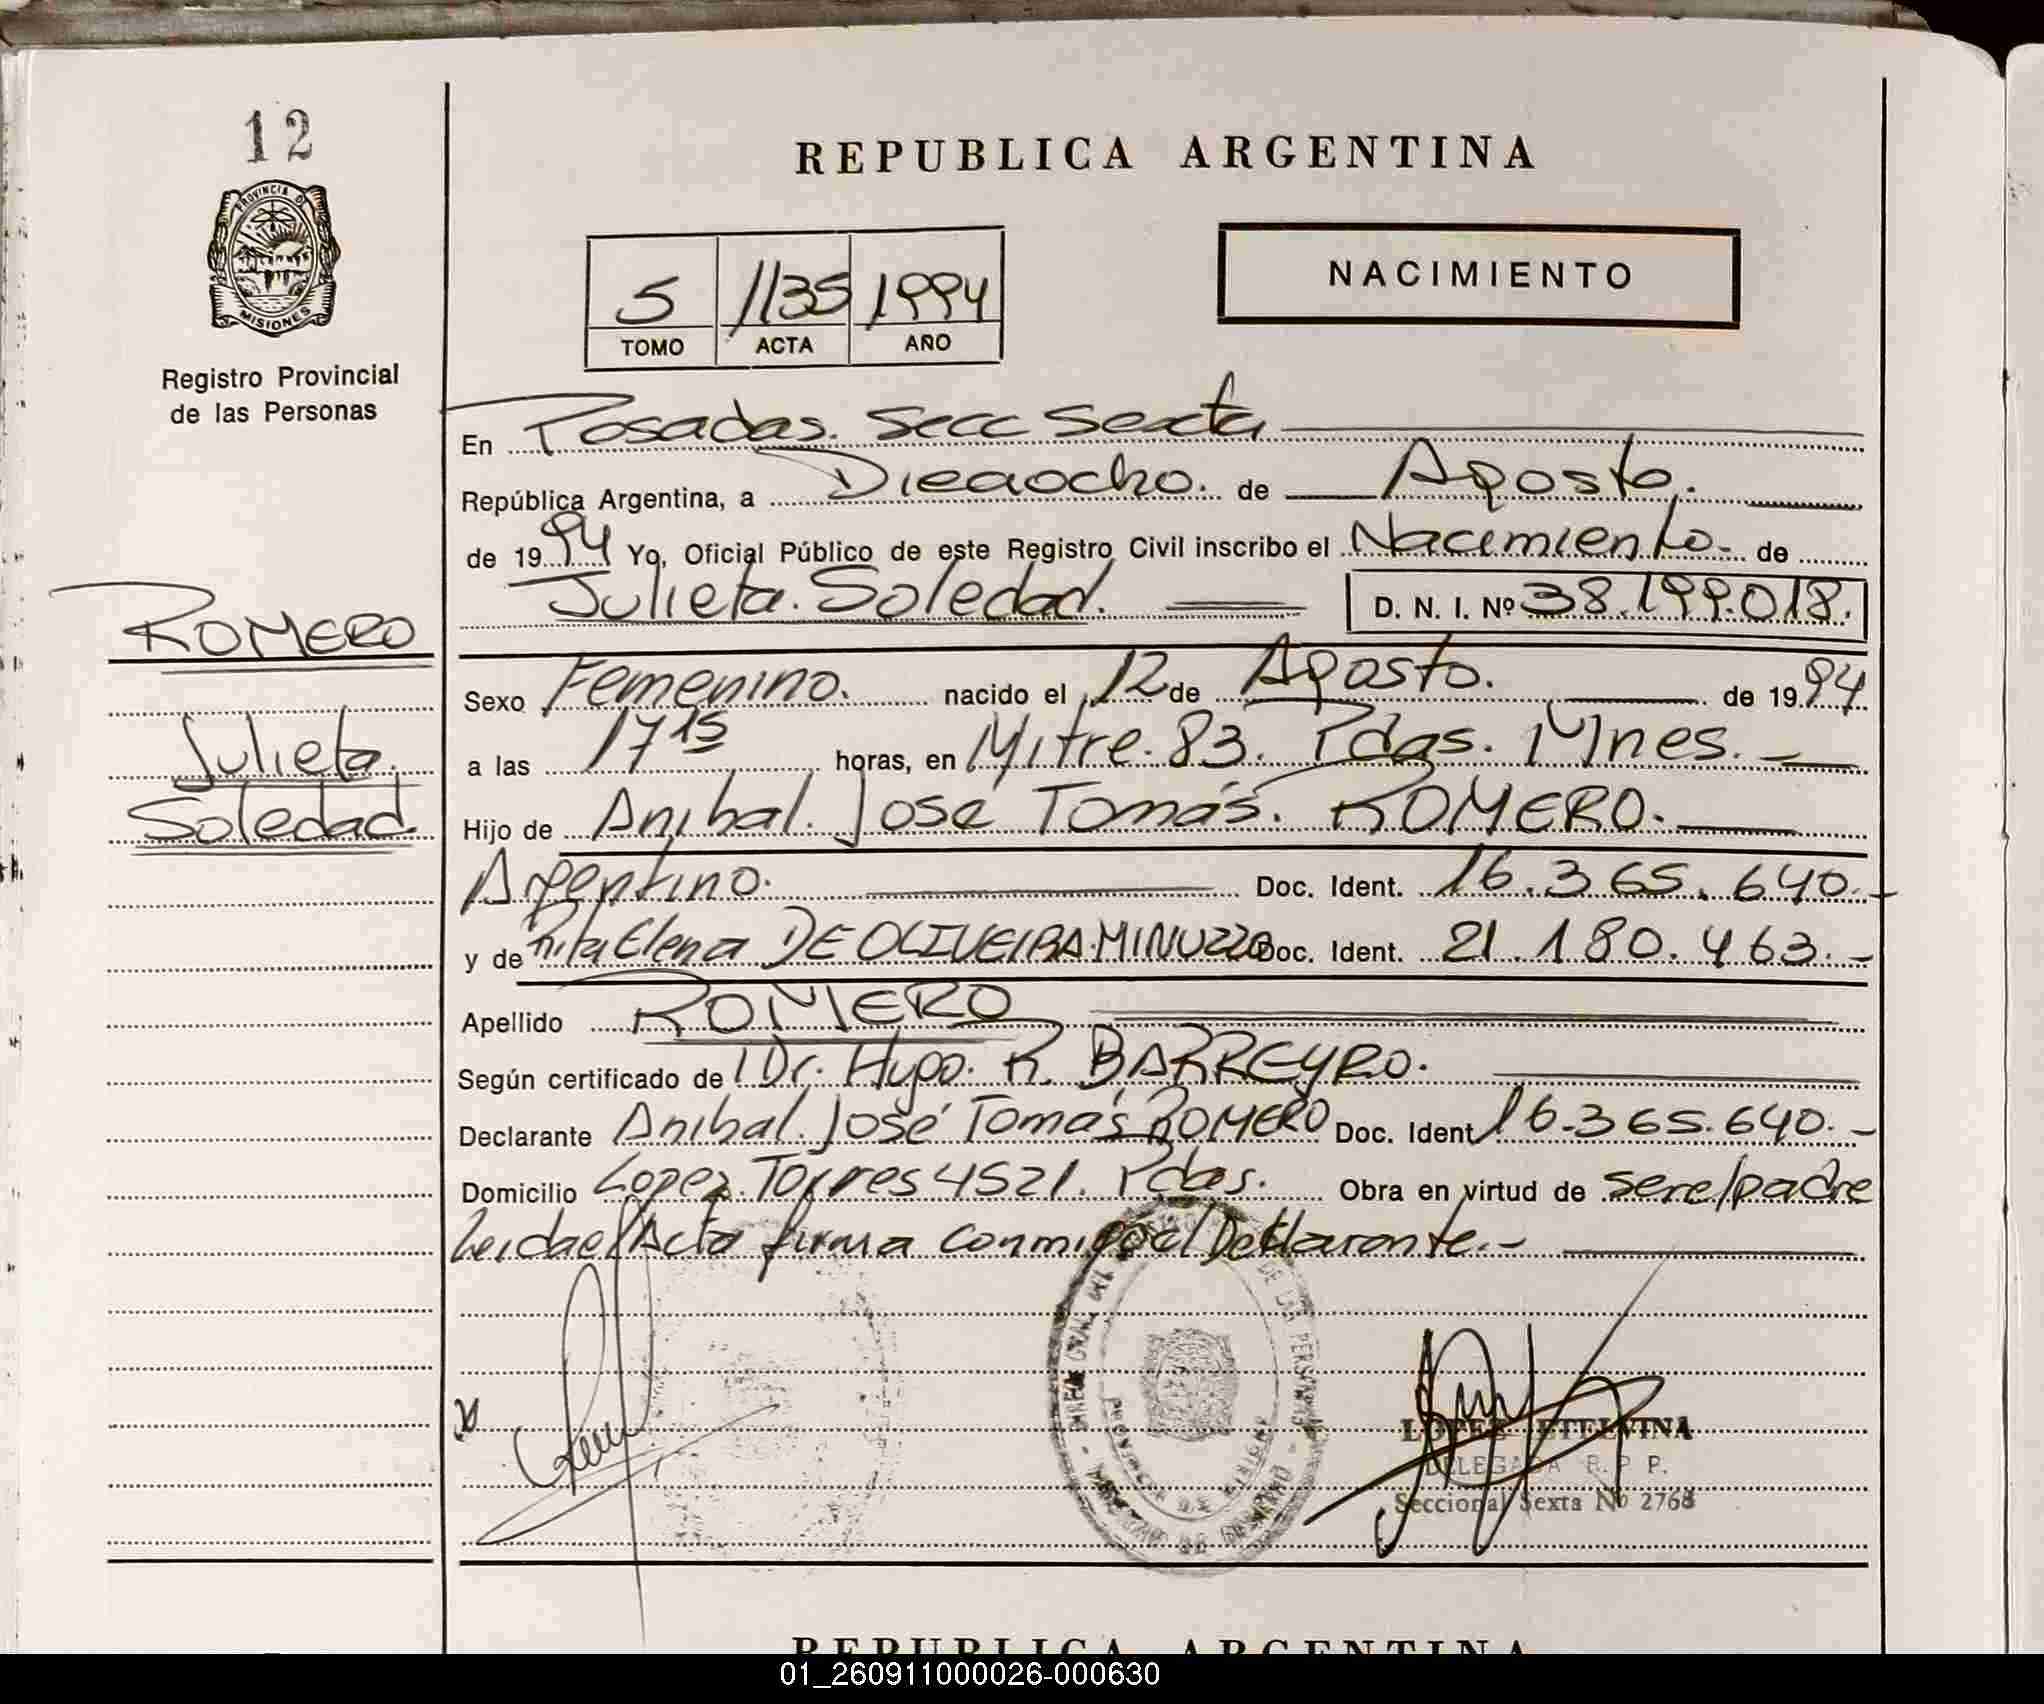 12
PROVINCIA DE
MISIONES
Registro Provincial
de las Personas
ROMERO
Julieta.
Soledad.
REPUBLICA ARGENTINA
5 1135 1994
TOMO ACTA AÑO
NACIMIENTO
En Posadas. Secc Sexta
República Argentina, a Dieciocho. de Agosto.
de 1994 Yo, Oficial Público de este Registro Civil inscribo el Nacimiento. de
Julieta. Soledad. D. N. I. Nº 38.199.018.
Sexo Femenino. nacido el 12 de Agosto. de 1994
a las 17 15 horas, en Mitre. 83. Pdas. Mnes.
Hijo de Anibal. José Tomás. ROMERO.
Argentino. Doc. Ident. 16.365.640.-
y de Rita Elena DE OLIVEIRA.MINUZZO Doc. Ident. 21.180.463.-
Apellido ROMERO
Según certificado de Dr. Hugo. R. BARREYRO.
Declarante Anibal. José Tomás ROMERO Doc. Ident 16.365.640.-
Domicilio Lopez. Torres 4521. Pdas. Obra en virtud de ser el padre
Leida el Acta firma conmigo el Declarante.-
LOPEZ ETELVINA
DELEGADA R. P. P.
Seccional Sexta Nº 2768
REPUBLICA ARGENTINA
01_260911000026-000630